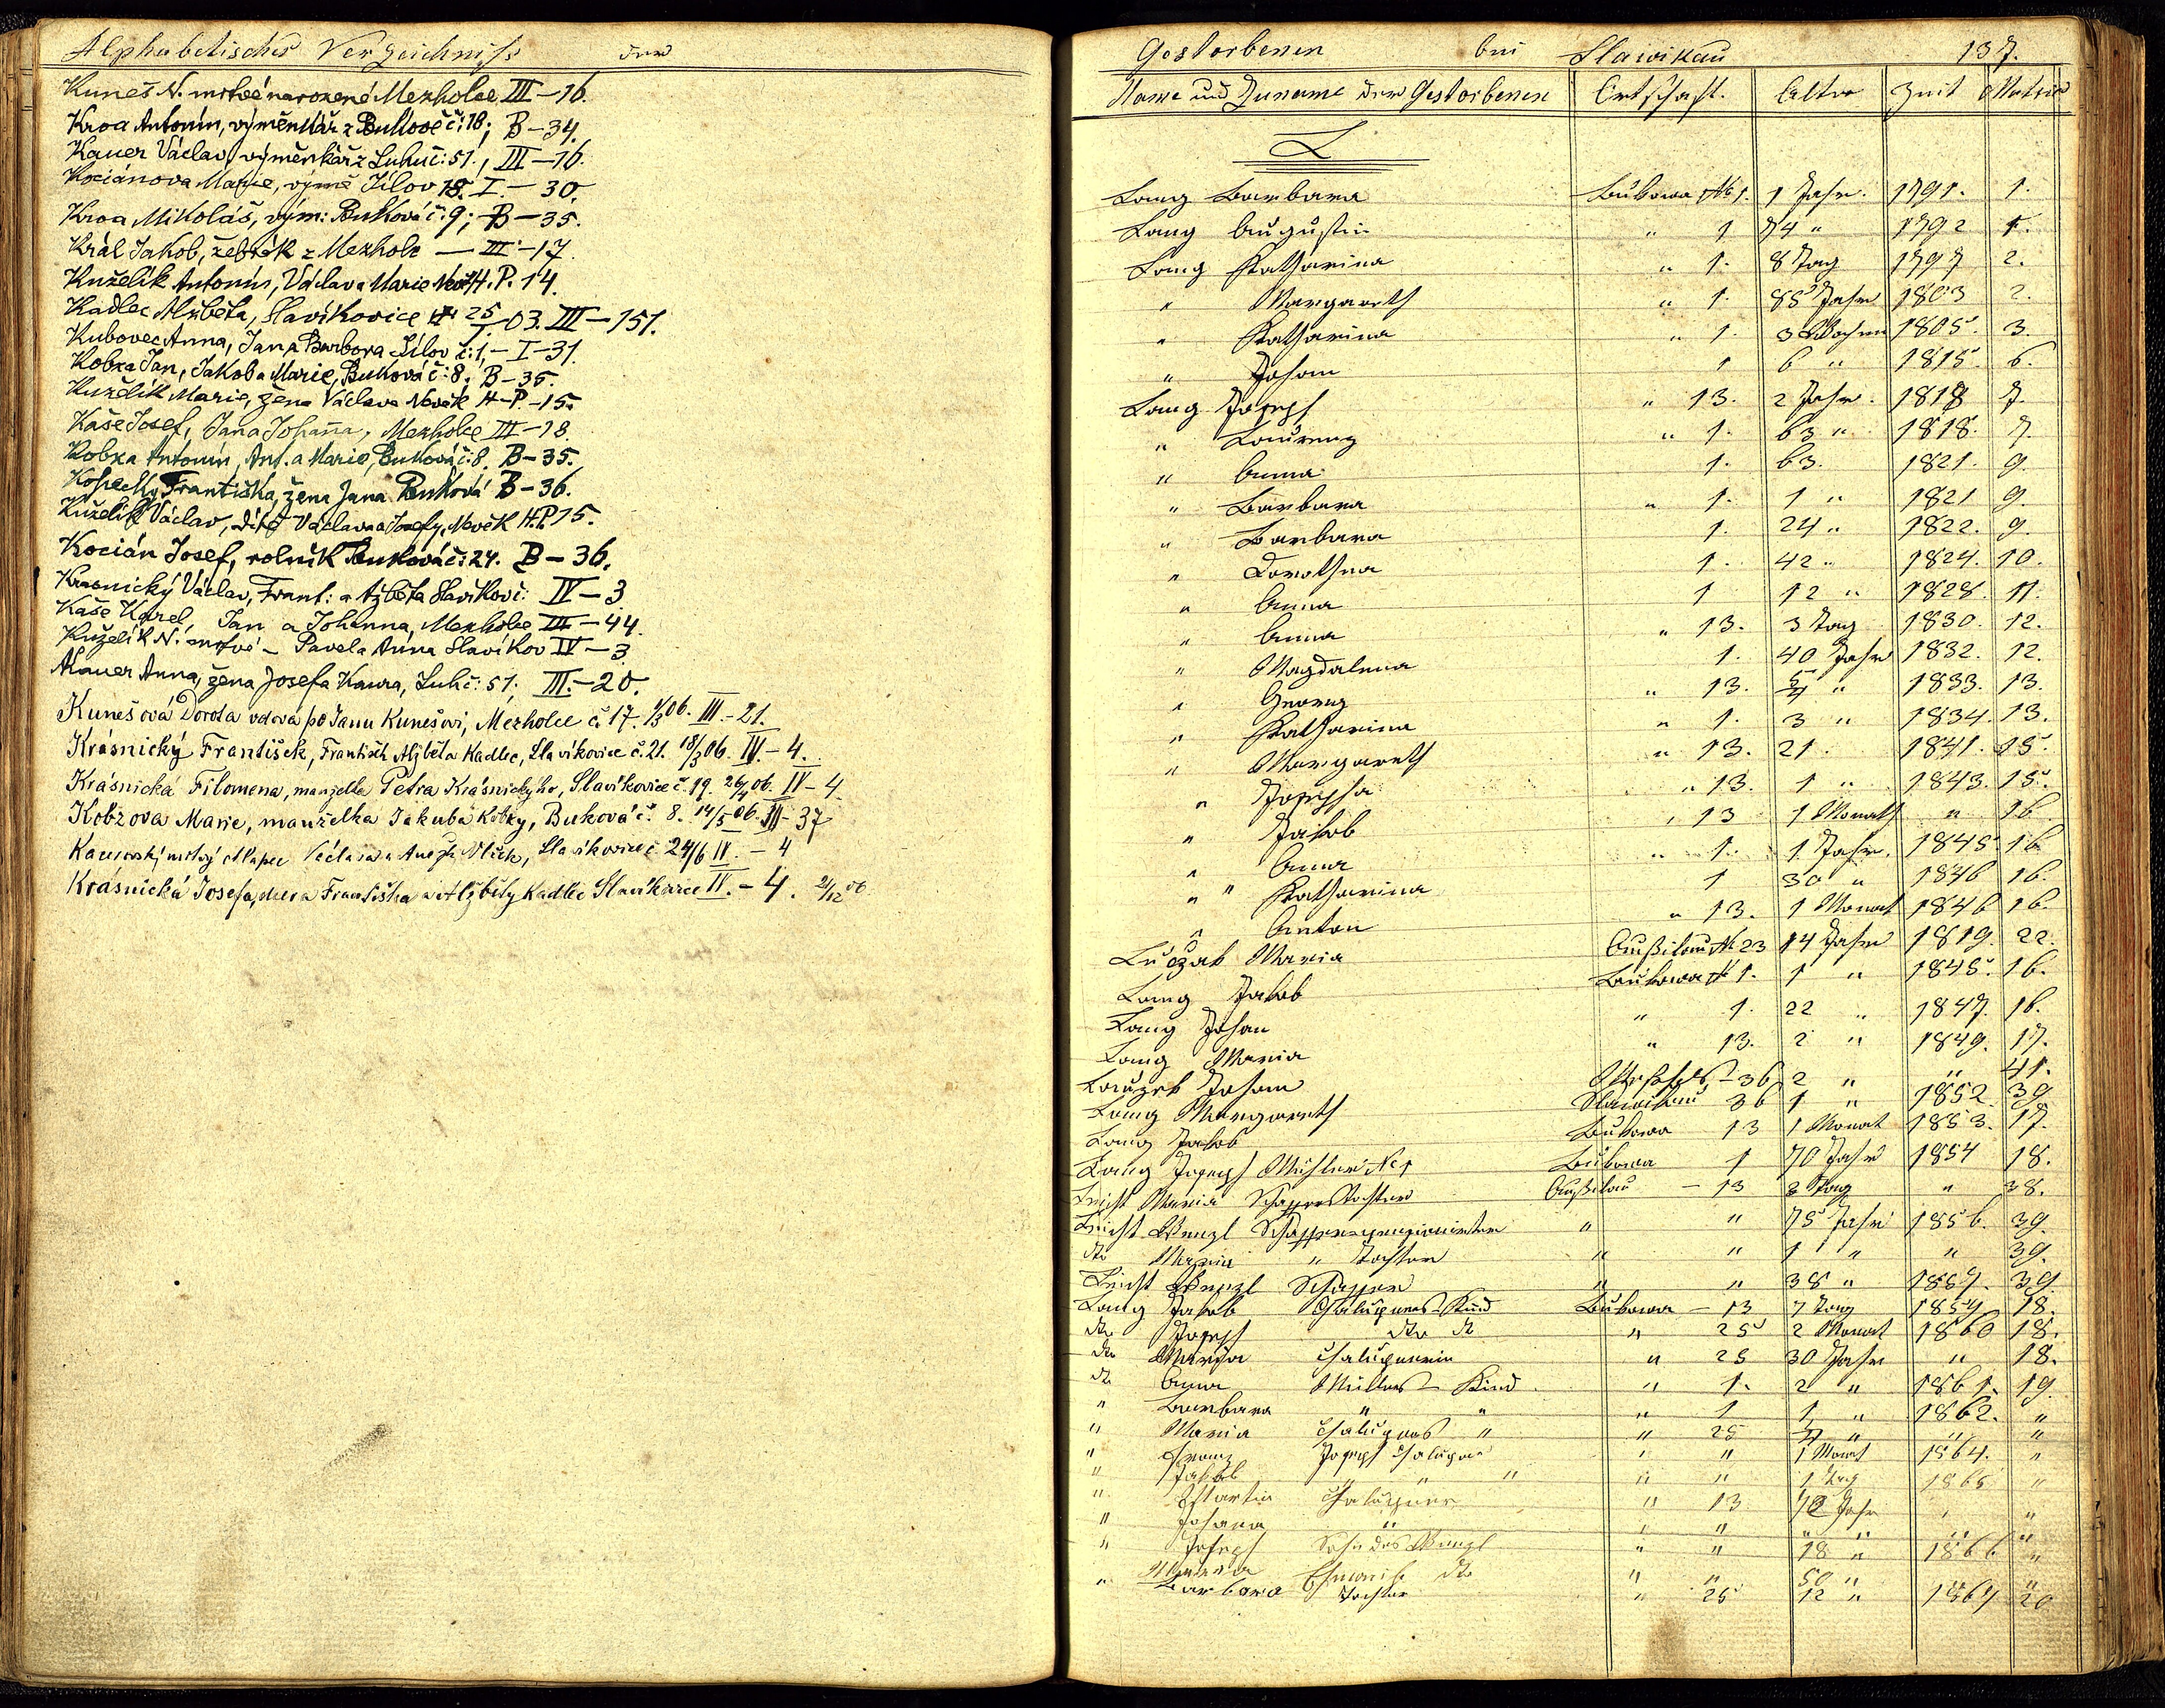 Alphabetisches Verzeichniss der
Kuneš N. mrtvě narozené Mezholce III–16.
Kroa Antonín, výměnkář z Bukové č: 18; B–34.
Kauer Václav, výměnkář z Luhu č: 51., III–16.
Kociánova Marie, výmě Jílov 18. I–30.
Kroa Mikoláš, vým: Buková č: 9; B–35.
Král Jakob, žebrák z Mezholz — III–17.
Kuželík Antonín, Václava Marie H.P. 14.
Kadlec Alžběta, Slavíkovice 25/I 03. III–151.
Kubovec Anna, Jan a Barbora Jílov č: 1, – I–31.
Kobza Jan, Jakob a Marie, Buková č: 8. B–35.
Kuželík Marie, žena Václava Novák H–P.–15.
Kaše Josef, Jana Johanna, Mezholce III–18.
Kobza Antonín, Ant. a Marie, Buková č: 8. B–35.
Kopecký Františka, žena Jana Buková B–36.
Kuželík Václav, dítě Václava a Josefy, Novák H.P. 15.
Kocián Josef, rolník Buková č: 24. B–36.
Krasnický Václav, Frant: a Alžběta Slavíkovi: IV–3.
Kaše Karel, Jan a Johanna, Mezholce III–44.
Kuželík N. mrtvé – Pavel a Anna Slavíkov IV–3.
Kauer Anna, žena Josefa Kaura, Luh č: 51; III.–20.
Kunešová Dorota vdova po Janu Kunešovi, Mezholce č 17. 1/3 06. III.–21.
Krásnický František, František Alžběta Kadlec, Slavíkovice č. 21. 18/3 06. IV.–4.
Krásnická Filomena, manželka Petra Krásnickýho, Slavíkovice č. 19. 26/4 06. IV–4.
Kobzova Marie, manželka Jakuba Kobzy, Buková č. 8. 14/5 06. III–37
mrtvý chlapec Václava a Slavíkovice č 24/6 IV. – 4
Krásnická Josefa, dcera Františka a Alžběty Kadlec Slavíkovice IV.–4. 21/12 06
Gestorbenen bei Slawikau 137.
Name und Zuname der Gestorbenen Ortschaft. Alter Zeit Matrik
L
Lang Barbara Bukowa № 1. 1 Jahr. 1791. 1.
Lang Augustin " 1 74 " 1792 1.
Lang Katharina " 1. 8 Tag 1797 2.
" Margareth " 1. 85 Jahr 1803 2.
" Katharina " 1. 3 Wochen 1805. 3.
" Johann 1 6 " 1815. 6.
Lang Joseph " 13. 2 Jahr. 1818 7.
" Laurenz " 1. 63 " 1818. 7.
" Anna 1. 63. 1821. 9.
" Barbara " 1. 1 " 1821 9.
" Barbara 1. 24 " 1822. 9.
" Dorothea 1. 42 " 1824. 10.
" Anna 1 12 " 1828. 11.
" Anna " 13. 3 Tag 1830. 12.
" Magdalena 1. 40 Jahr 1832. 12.
" Georg " 13. " 1833. 13.
" Katharina " 1. 3 " 1834. 13.
" Margareth " 13. 21. 1841. 15.
" Josepha " 13. 1 " 1843. 15.
" Jakob " 13 1 Monath " 16.
" Anna " 1. 1 Jahr. 1845 16
" " Katharina 1 30 " 1846 16.
" Anton " 13. 1 Monat 1846 16.
Luczak Maria Außilau № 23 14 Jahr 1819. 22.
Lang Jakob Bukowa № 1. 1 " 1845. 16.
Lang Johan " 1. 22 " 1847. 16.
Lang Maria " 13. 2 " 1849. 17.
Johann 36 2 " " 41.
Lang Margareth Slawikau 36 1 " 1852 39
Lang Jakob Bukowa 13 1 Monat 1853. 17.
Lang Joseph № 1 Bukowa 1 70 Jahr 1854 18.
Leicht Maria Schaffers Tochter Außilau – 13 3 Tag " 38.
Leicht Wenzl " " 75 Jahr 1856. 39.
dto Maria " Tochter " " 1 " " 39.
Leicht Wenzl Schaffer " " 38 " 1857. 39
Lang Jakob Chalupners Kind Bukowa – 13 7 Tag 1857 18.
dto Joseph dto dt " 25 2 Monat 1860 18.
dto Maria Chalupnerin " 25 30 Jahr " 18.
dt Anna Müllers Kind " 1. 2 " 1861. 19.
" Barbara " " " 1 1 " 1862. "
" Maria Chalupners " " 25 " " "
" Franz Joseph Chalupner " " 1 Monat 1864. "
" Jakob " " " " " 1 Tag 1865 "
" Martin Chalupner " 13 Jahr " "
" Johana " " " " " " "
" Joseph Sohn des Wenzl " " 18 " 1866 "
Maria Eheweib dto " " 50 " "
" Barbara Tochter " 25 12 " 1867 20